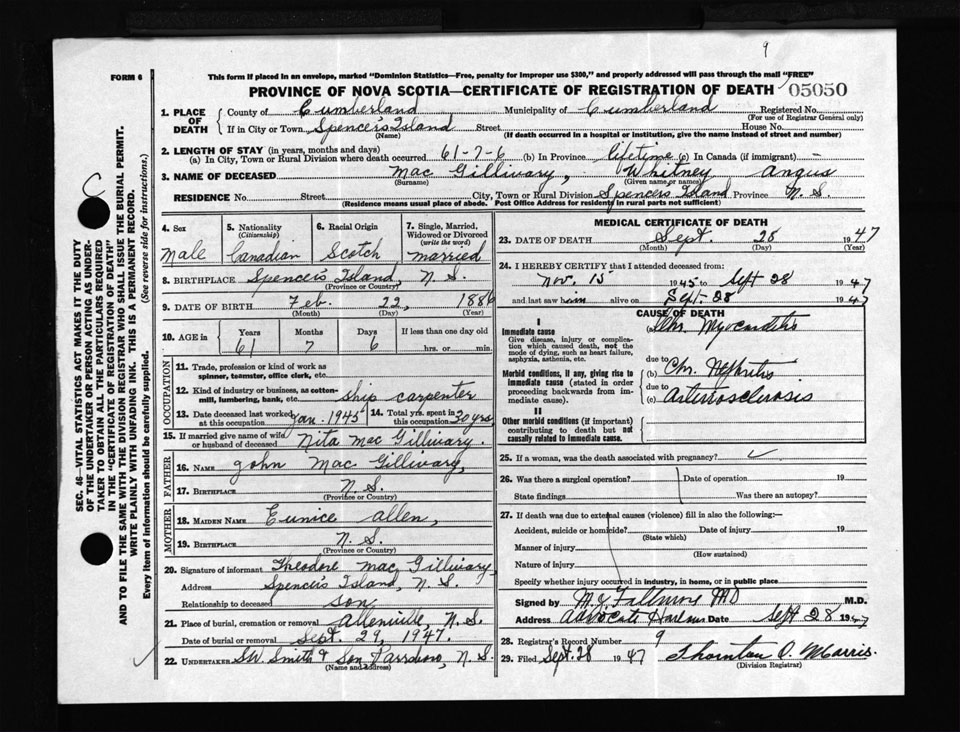 9
FORM 6
This form if placed in an envelope, marked "Dominion Statistics—Free, penalty for improper use $300," and properly addressed will pass through the mail "FREE"
PROVINCE OF NOVA SCOTIA—CERTIFICATE OF REGISTRATION OF DEATH 05050
SEC. 46—VITAL STATISTICS ACT MAKES IT THE DUTY
OF THE UNDERTAKER OR PERSON ACTING AS UNDER-
TAKER TO OBTAIN ALL THE PARTICULARS REQUIRED
IN THE "CERTIFICATE OF REGISTRATION OF DEATH"
AND TO FILE THE SAME WITH THE DIVISION REGISTRAR WHO SHALL ISSUE THE BURIAL PERMIT.
WRITE PLAINLY WITH UNFADING INK. THIS IS A PERMANENT RECORD.
Every item of information should be carefully supplied. (See reverse side for instructions.)
1. PLACE OF DEATH County of Cumberland Municipality of Cumberland Registered No.
(For use of Registrar General only)
If in City or Town Spencer's Island Street House No.
(Name) (If death occurred in a hospital or institution, give the name instead of street and number)
2. LENGTH OF STAY (in years, months and days)
(a) In City, Town or Rural Division where death occurred 61-7-6 (b) In Province lifetime (c) In Canada (if immigrant) —
3. NAME OF DECEASED Mac Gillivary, Whitney Angus
(Surname) (Given name or names)
RESIDENCE No. Street City, Town or Rural Division Spencers Island Province N. S.
(Residence means usual place of abode. Post Office Address for residents in rural parts not sufficient)
4. Sex
Male
5. Nationality
(Citizenship)
Canadian
6. Racial Origin
Scotch
7. Single, Married, Widowed or Divorced
(write the word)
married
8. BIRTHPLACE Spencer's Island, N. S.
(Province or Country)
9. DATE OF BIRTH Feb. 22, 1886
(Month) (Day) (Year)
10. AGE in Years Months Days If less than one day old
61 7 6 hrs. or min.
OCCUPATION
11. Trade, profession or kind of work as
spinner, teamster, office clerk, etc.
12. Kind of industry or business, as cotton-
mill, lumbering, bank, etc. ship carpenter
13. Date deceased last worked at this occupation Jan. 1945 14. Total yrs. spent in this occupation 20 yrs.
15. If married give name of wife or husband of deceased Nita Mac Gillivary.
FATHER
16. NAME John Mac Gillivary,
17. BIRTHPLACE N. S.
(Province or Country)
MOTHER
18. MAIDEN NAME Eunice Allen,
19. BIRTHPLACE N. S.
(Province or Country)
20. Signature of informant Theodore Mac Gillivary,
Address Spencer's Island, N. S.
Relationship to deceased son
21. Place of burial, cremation or removal Allenville, N. S.
Date of burial or removal Sept. 29, 1947.
22. UNDERTAKER Smith & Son, Parrsboro, N. S.
(Name and address)
MEDICAL CERTIFICATE OF DEATH
23. DATE OF DEATH Sept. 28 1947
(Month) (Day) (Year)
24. I HEREBY CERTIFY that I attended deceased from:
Nov. 15 1945 to Sept 28 1947
and last saw him alive on Sept-28 1947
CAUSE OF DEATH
I
Immediate cause
Give disease, injury or complica-
tion which caused death, not the
mode of dying, such as heart failure,
asphyxia, asthenia, etc.
(a) Chr. Myocarditis
due to
Morbid conditions, if any, giving rise to
immediate cause (stated in order
proceeding backwards from im-
mediate cause).
(b) Chr. Nephritis
due to
(c) Arteriosclerosis
II
Other morbid conditions (if important)
contributing to death but not
causally related to immediate cause.
25. If a woman, was the death associated with pregnancy?
26. Was there a surgical operation? Date of operation 19
State findings Was there an autopsy?
27. If death was due to external causes (violence) fill in also the following:—
Accident, suicide or homicide? Date of injury 19
(State which)
Manner of injury
(How sustained)
Nature of injury
Specify whether injury occurred in industry, in home, or in public place
Signed by Fillmore MD M.D.
Address Advocate Harbour Date Sept 28 1947
28. Registrar's Record Number 9
29. Filed Sept. 28 1947 Thornton O. Morris.
(Division Registrar)